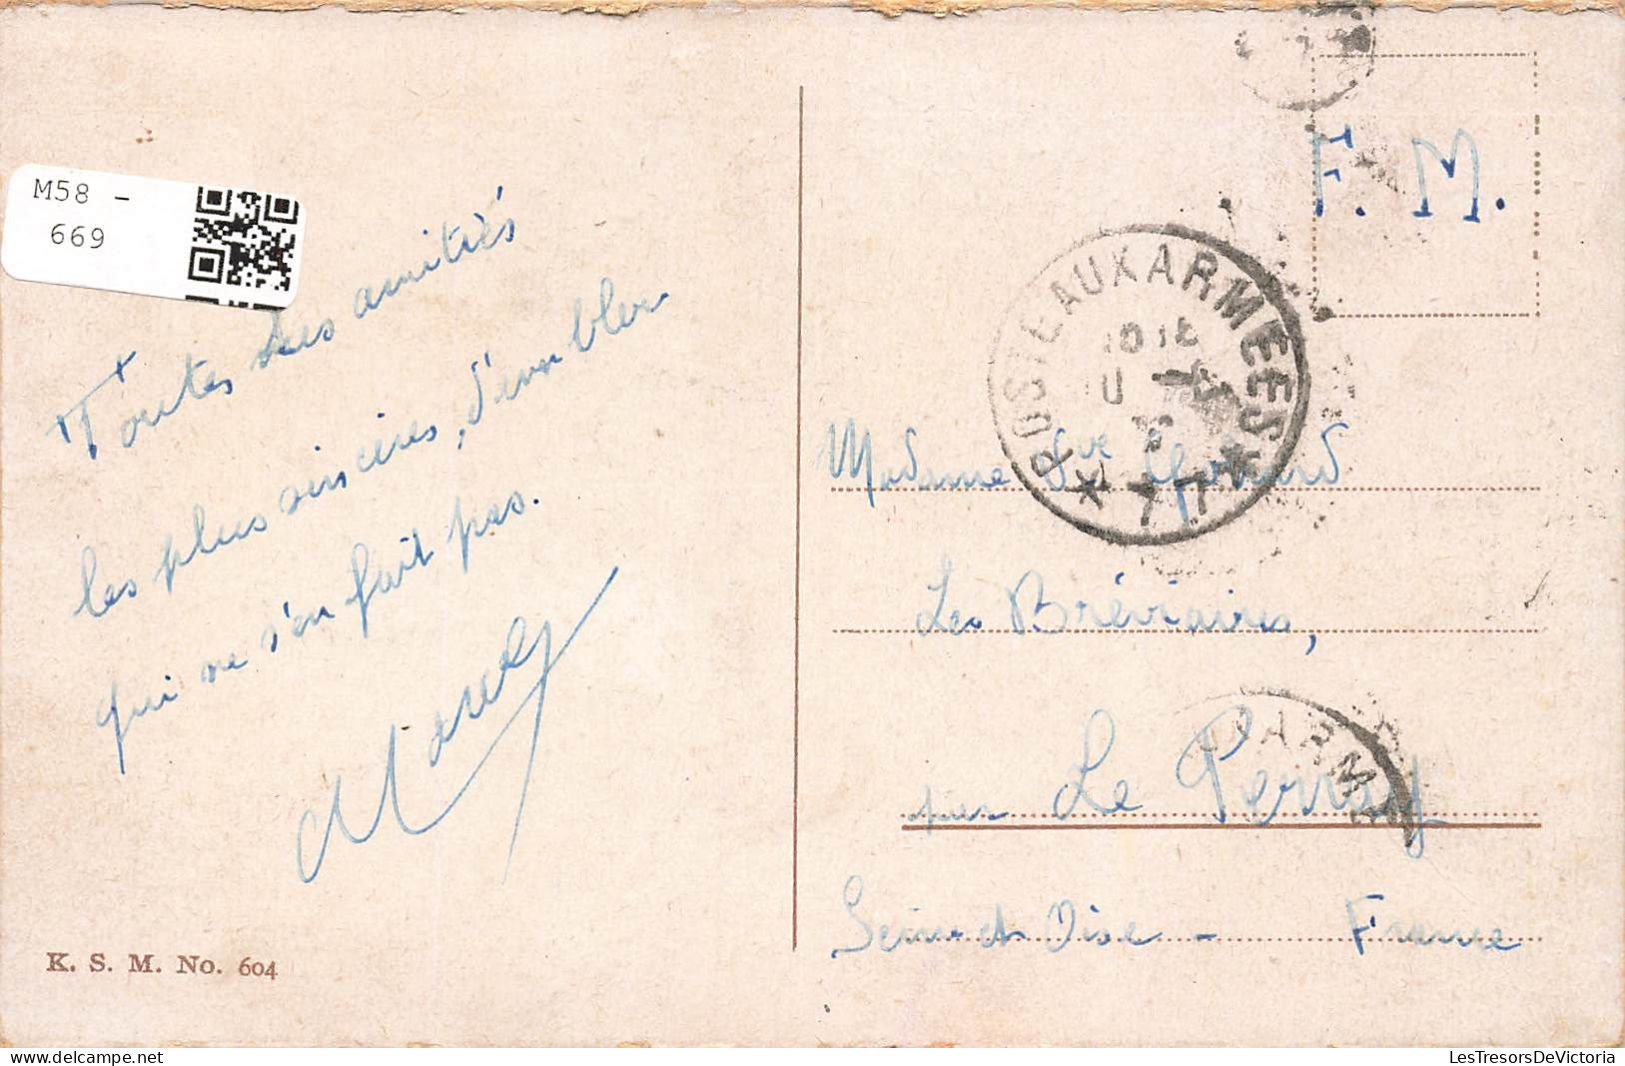 M58 -
669
Toutes mes amitiés
les plus sincères, d'un bleu
qui ne s'en fait pas.
Marcel
K. S. M. No. 604
F. M.
POSTE AUX ARMEES
* 77 *
Madame Vve
Les Bréviaires,
par Le Perray
Seine et Oise - France
ARME
LesTresorsDeVictoria